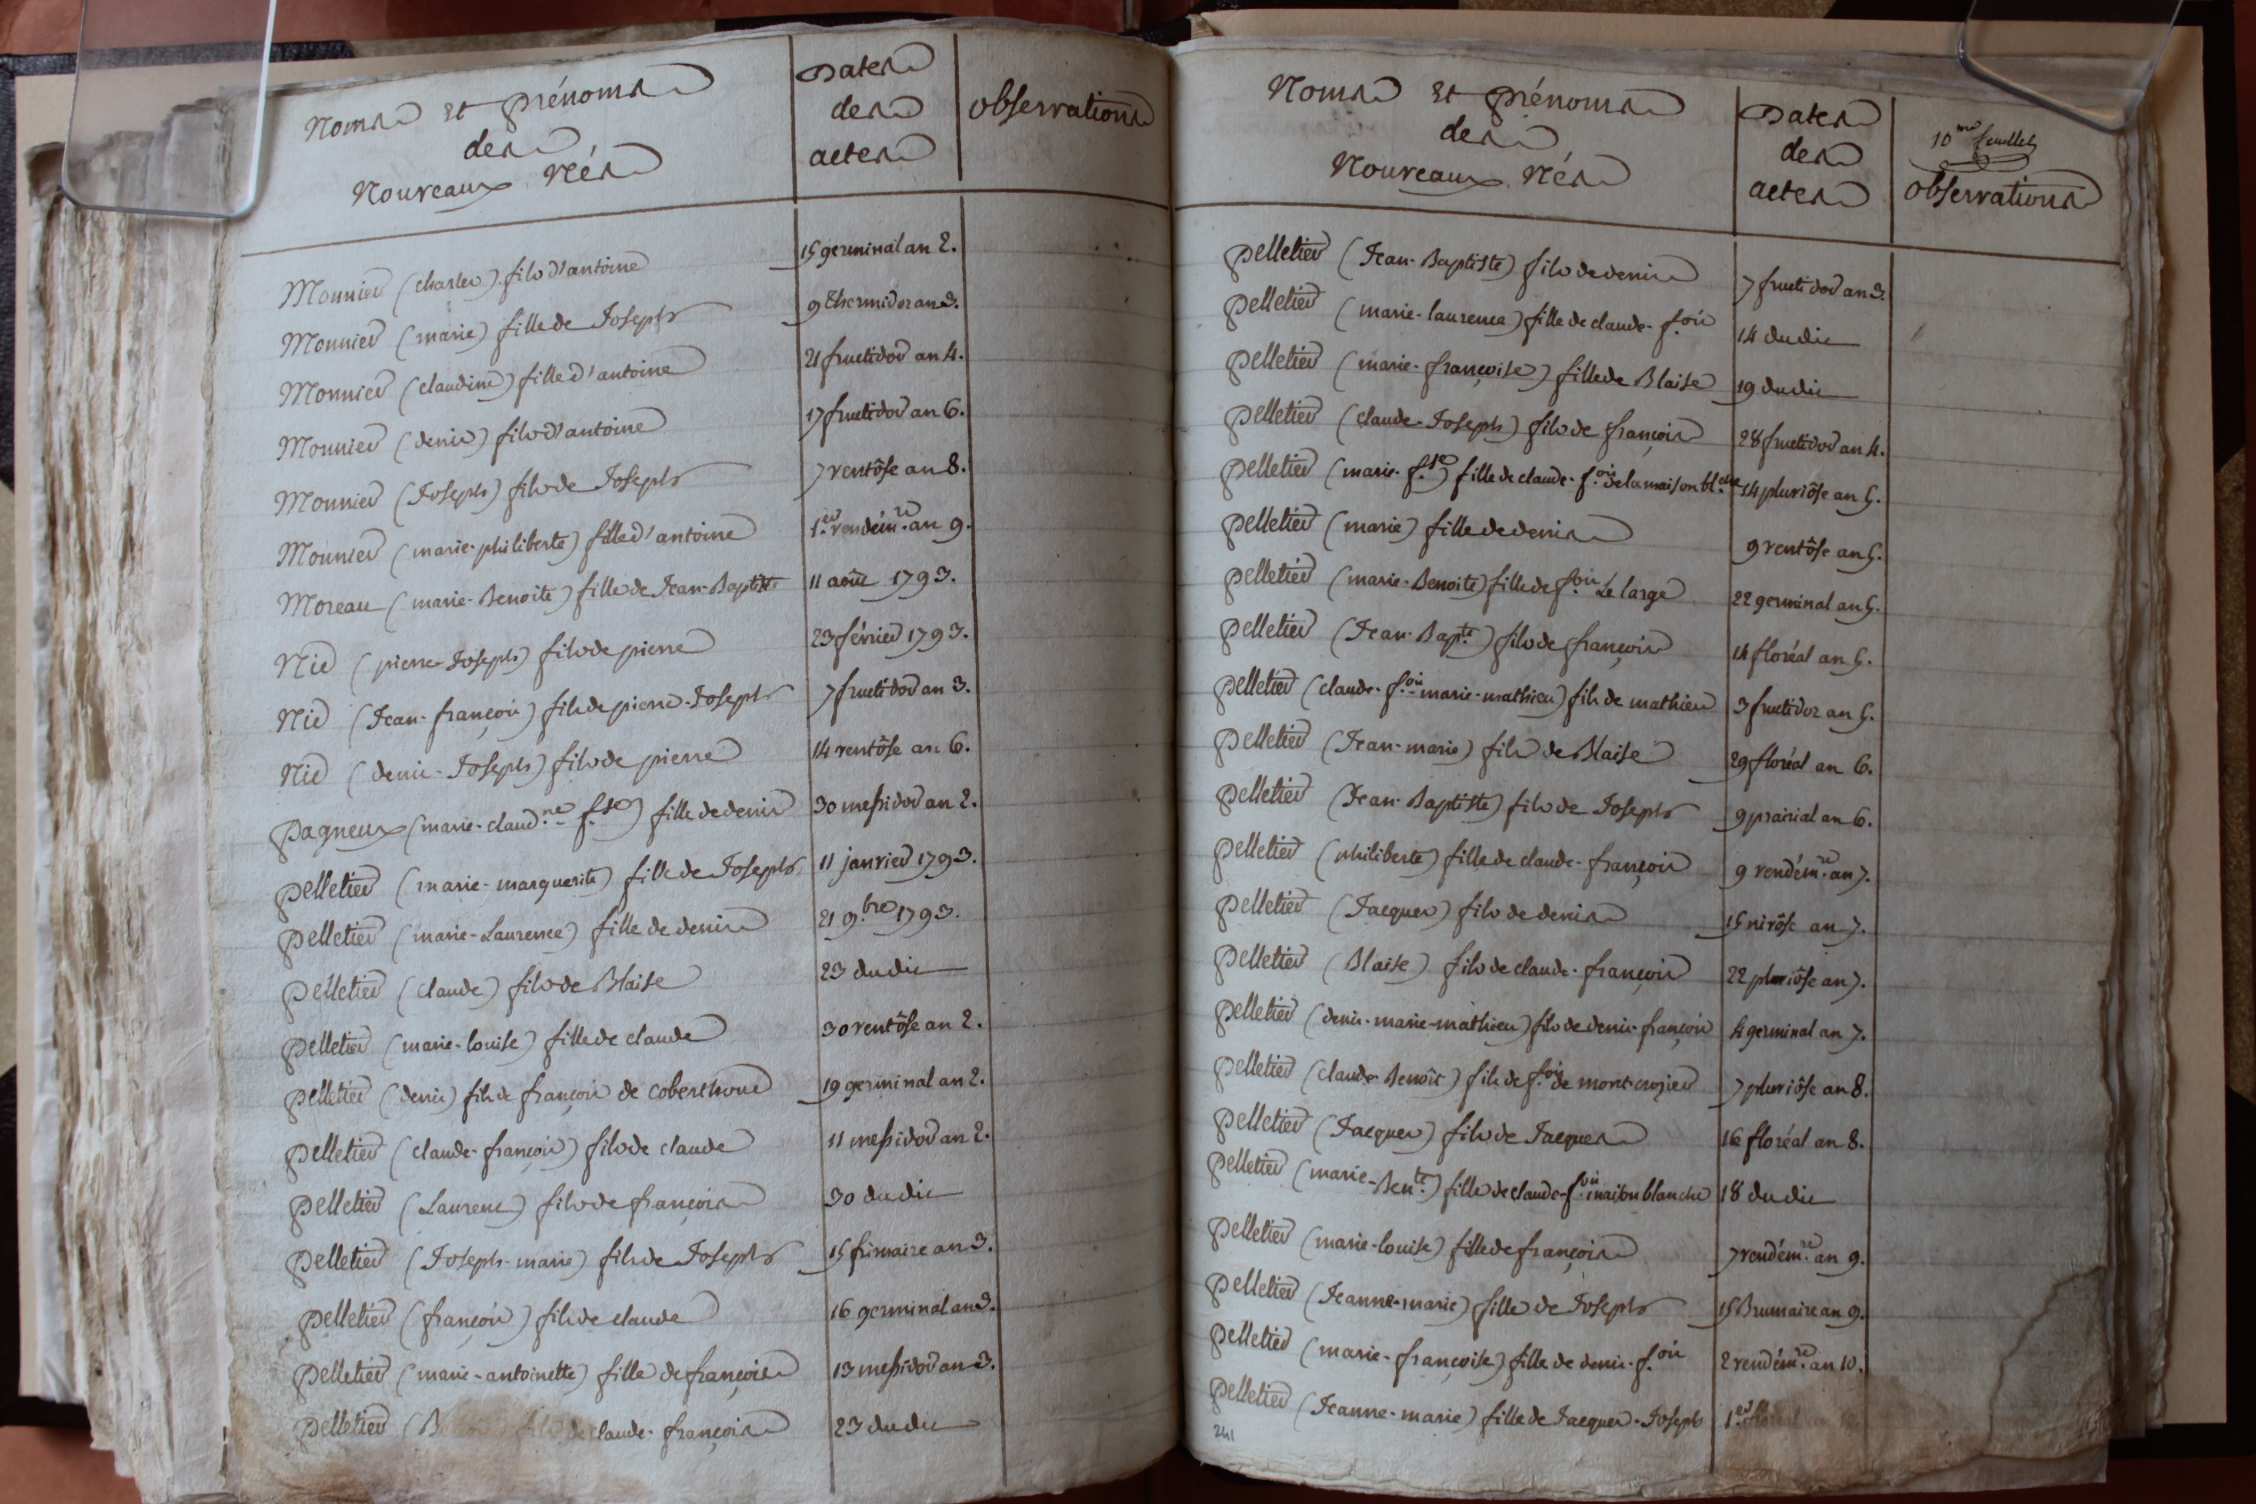 Noms Et Prénoms
des
Nouveaux Nés
Dates
des
actes
observations
Monnier (charles) fils d'antoine 15 germinal an 2.
Monnier (marie) fille de Joseph 9 thermidor an 3.
Monnier (claudine) fille d'antoine 21 fructidor an 4.
Monnier (denis) fils d'antoine 17 fructidor an 6.
Monnier (Joseph) fils de Joseph 7 ventôse an 8.
Monnier (marie-philiberte) fille d'antoine 1.er vendém.re an 9.
Moreau (marie-Benoite) fille de Jean-Baptiste 11 août 1793.
Nie (pierre-Joseph) fils de pierre 23 février 1793.
Nie (Jean-françois) fils de pierre-Joseph 7 fructidor an 3.
Nie (denis-Joseph) fils de pierre 14 ventôse an 6.
Pagneux (marie-claud.ne f.se) fille de denis 30 messidor an 2.
Pelletier (marie-marguerite) fille de Joseph 11 janvier 1793.
Pelletier (marie-Laurence) fille de denis 21 9.bre 1793.
Pelletier (claude) fils de Blaise 23 dudit
Pelletier (marie-louise) fille de claude 30 ventôse an 2.
Pelletier (denis) fils de françois de coberthoud 19 germinal an 2.
Pelletier (claude-françois) fils de claude 11 messidor an 2.
Pelletier (Laurent) fils de françois 30 dudit
Pelletier (Joseph-marie) fils de Joseph 15 frimaire an 3.
Pelletier (françois) fils de claude 16 germinal an 3.
Pelletier (marie-antoinette) fille de françois 13 messidor an 3.
Pelletier (B fils de claude-françois 23 dudit
Noms Et Prénoms
des
Nouveaux Nés
Dates
des
actes
10.me feuillet
observations
Pelletier (Jean-Baptiste) fils de denis 7 fructidor an 3.
Pelletier (marie-laurence) fille de claude-f.ois 14 dudit
Pelletier (marie-françoise) fille de Blaise 19 dudit
Pelletier (claude-Joseph) fils de françois 28 fructidor an 4.
Pelletier (marie-f.se) fille de claude-f.ois de la maison bl.che 14 pluviôse an 5.
Pelletier (marie) fille de denis 9 ventôse an 5.
Pelletier (marie-Benoite) fille de f.ois Le large 22 germinal an 5.
Pelletier (Jean-Bap.te) fils de françois 14 floréal an 5.
Pelletier (claude-f.ois-marie-mathieu) fils de mathieu 3 fructidor an 5.
Pelletier (Jean-marie) fils de Blaise 29 floréal an 6.
Pelletier (Jean-Baptiste) fils de Joseph 9 prairial an 6.
Pelletier (philiberte) fille de claude-françois 9 vendém.re an 7.
Pelletier (Jacques) fils de denis 15 nivôse an 7.
Pelletier (Blaise) fils de claude-françois 22 pluviôse an 7.
Pelletier (denis-marie-mathieu) fils de denis-françois 4 germinal an 7.
Pelletier (claude-Benoît) fils de f.ois de mont-crozier 7 pluviôse an 8.
Pelletier (Jacques) fils de Jacques 16 floréal an 8.
Pelletier (marie-Ben.te) fille de claude-f.ois maison blanche 18 dudit
Pelletier (marie-louise) fille de françois 7 vendém.re an 9.
Pelletier (Jeanne-marie) fille de Joseph 15 Brumaire an 9.
Pelletier (marie-françoise) fille de denis-f.ois 2 vendém.re an 10.
Pelletier (Jeanne-marie) fille de Jacques-Joseph 1.er
241